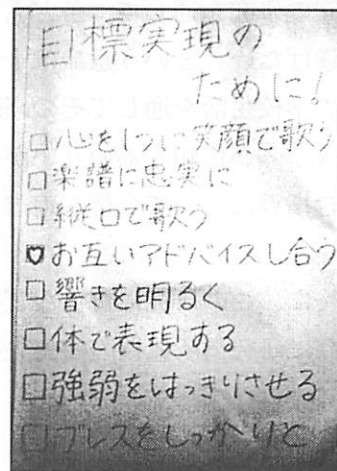 目標実現の
ために!
□心を1つに笑顔で歌う
□楽譜に忠実に
□縦口で歌う
♡お互いアドバイスし合う
□響きを明るく
□体で表現する
□強弱をはっきりさせる
□ブレスをしっかりと